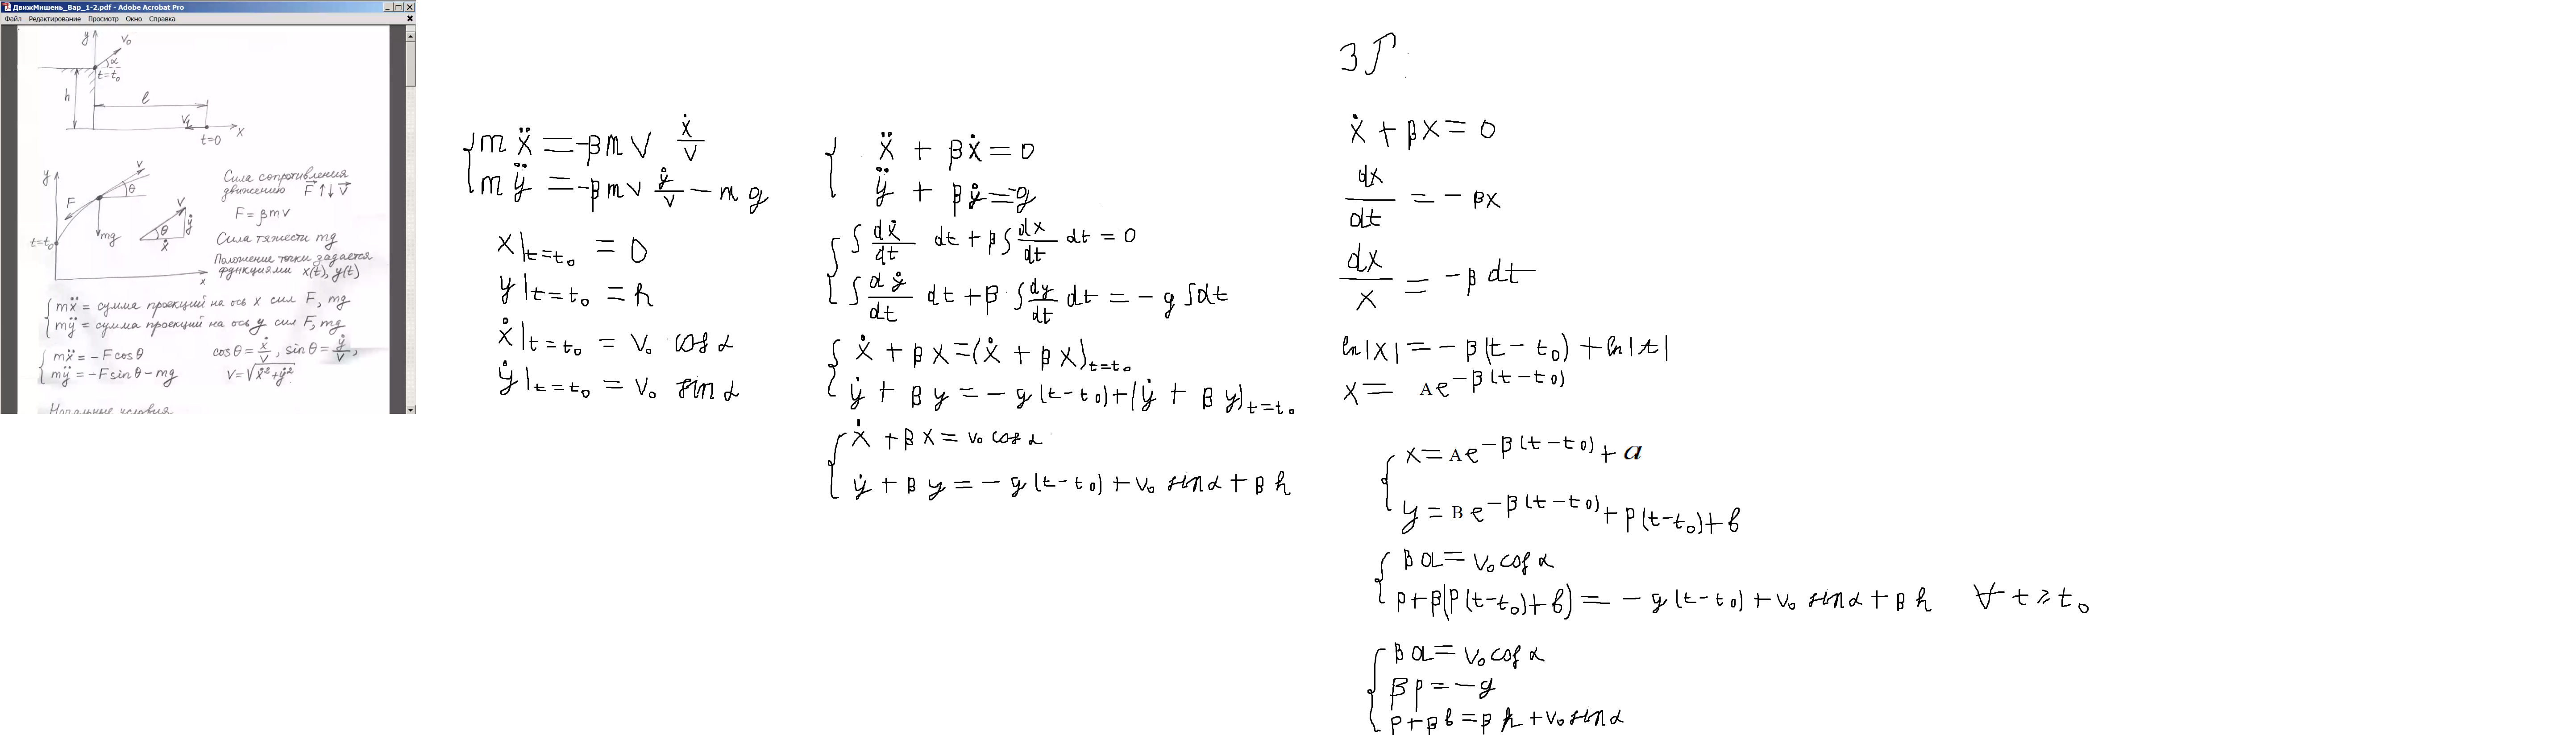 ДвижМишень_Вар_1-2.pdf - Adobe Acrobat Pro
Файл Редактирование Просмотр Окно Справка
y
v₀
α
t=t₀
h
ℓ
v₁
x
t=0
y
v
θ
F
mg
t=t₀
x
v
θ
ẏ
ẋ
Сила сопротивления
движению F⃗ ↑↓ v⃗
F = βmv
Сила тяжести mg
Положение точки задаётся
функциями x(t), y(t)
{ mẍ = сумма проекций на ось x сил F, mg
mÿ = сумма проекций на ось y сил F, mg
{ mẍ = -F cosθ
mÿ = -F sinθ - mg
cosθ = ẋ/v, sinθ = ẏ/v,
v = √(ẋ²+ẏ²)
Начальные условия
{ m ẍ = -β m v ẋ/v
m ÿ = -β m v ẏ/v - m g
x|t=t₀ = 0
y|t=t₀ = h
ẋ|t=t₀ = v₀ cos α
ẏ|t=t₀ = v₀ sin α
{ ẍ + βẋ = 0
ÿ + βẏ = -g
{ ∫ dẋ/dt dt + β ∫ dx/dt dt = 0
∫ dẏ/dt dt + β ∫ dy/dt dt = - g ∫dt
{ ẋ + βx = (ẋ + βx)t=t₀
ẏ + βy = - g(t-t₀) + (ẏ + βy)t=t₀
{ ẋ + βx = v₀ cos α
ẏ + βy = - g(t-t₀) + v₀ sin α + βh
ẋ + βx = 0
dx/dt = - βx
dx/x = - β dt
ln|x| = - β(t - t₀) + ln|A|
x = Ae^(-β(t-t₀))
{ x = Ae^(-β(t-t₀)) + a
y = Be^(-β(t-t₀)) + p(t-t₀) + b
{ βa = v₀ cos α
p + β(p(t-t₀)+b) = - g(t-t₀) + v₀ sin α + βh ∀ t ⩾ t₀
{ βa = v₀ cos α
βp = -g
p + βb = βh + v₀ sin α